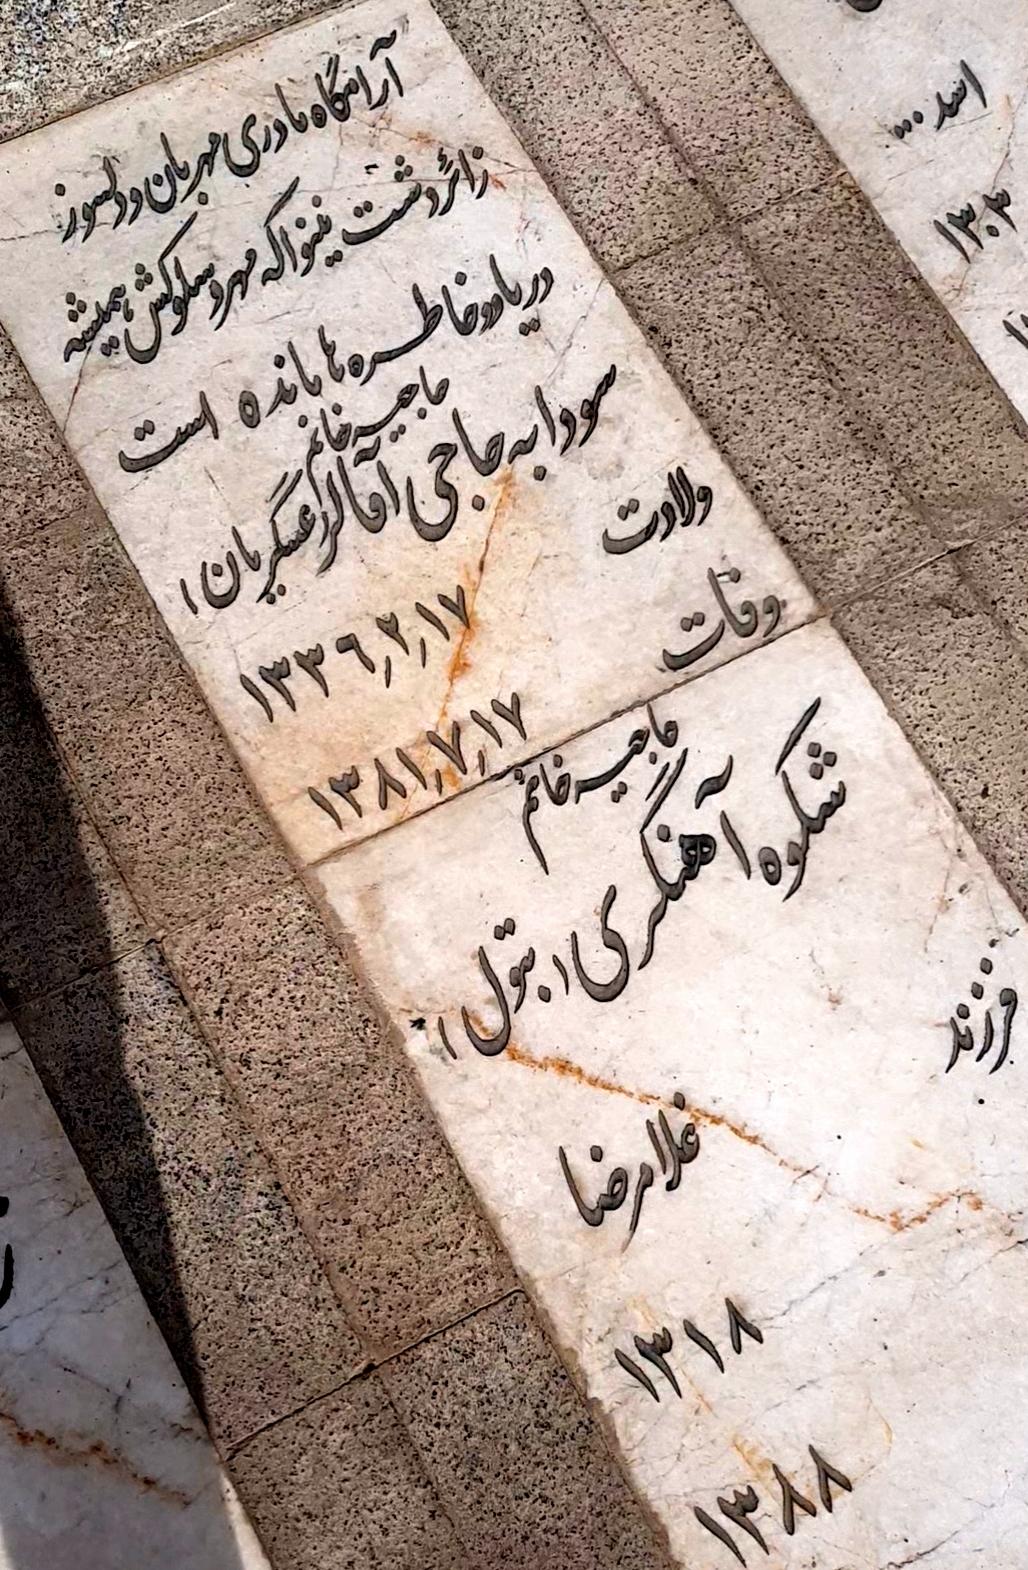 آرامگاه مادری مهربان و دلسوز
زائر دشت نینوا که مهر و سلوکش همیشه
در یاد و خاطره ها مانده است
حاجیه خانم
سودابه حاجی آقالر عسگریان
ولادت ۱۳۳۶٫۲٫۱۷
وفات ۱۳۸۱٫۷٫۱۷
حاجیه خانم
شکوه آهنگری (بتول)
فرزند غلامرضا
۱۳۱۸
۱۳۸۸
اسد...
۱۳۰۳